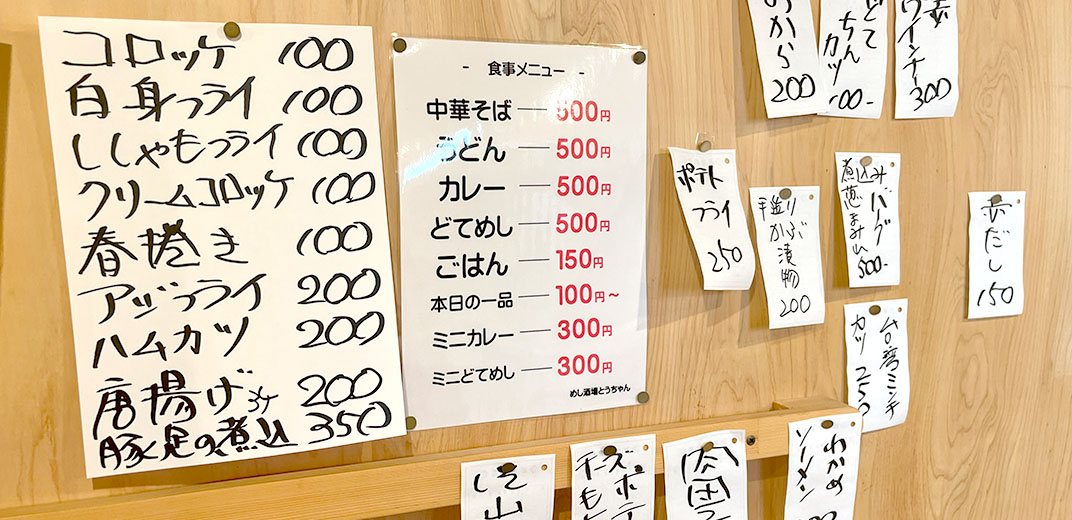 コロッケ 100
白身フライ 100
ししゃもフライ 100
クリームコロッケ 100
春捲き 100
アジフライ 200
ハムカツ 200
唐揚げ 3ケ 200
豚足の煮込 350
- 食事メニュー -
中華そば — 500円
うどん — 500円
カレー — 500円
どてめし — 500円
ごはん — 150円
本日の一品 — 100円～
ミニカレー — 300円
ミニどてめし — 300円
めし酒場とうちゃん
おから
200
どて
ちん
カツ
00-
ウインナー
300
ポテト
フライ
250
手造り
かぶ
漬物
200
煮込み
バーグ
500-
赤だし
150
台湾ミンチ
カツ 250
チーズ
ポテ
わかめ
ソーメン